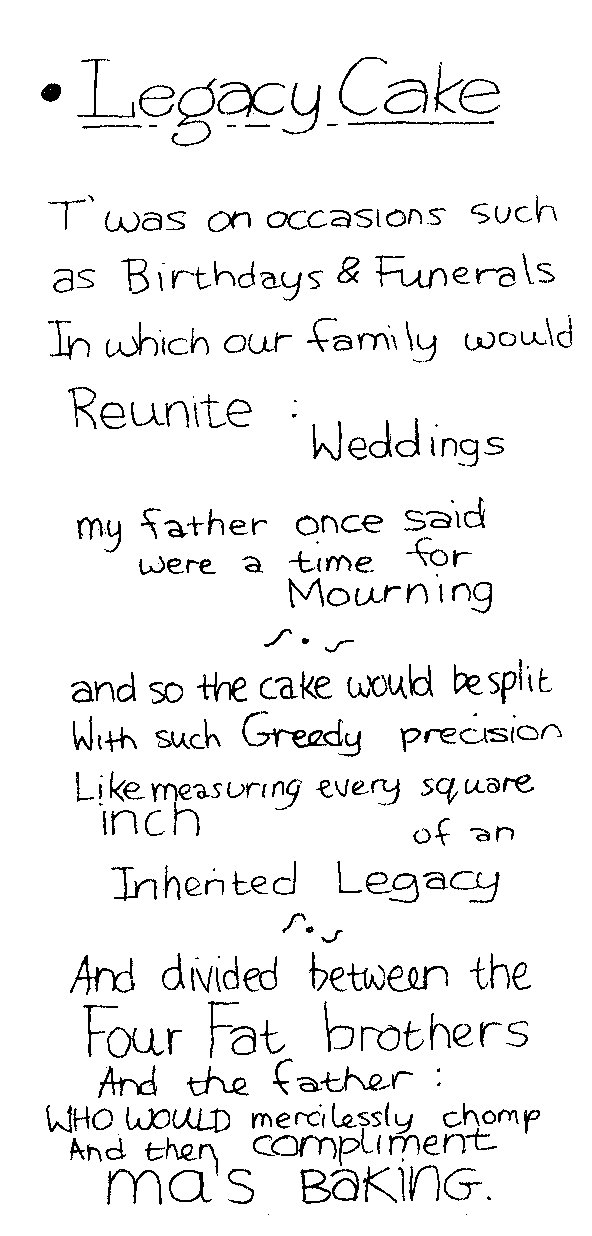 • Legacy Cake
T'was on occasions such
as Birthdays & Funerals
In which our family would
Reunite :
Weddings
my father once said
were a time for
Mourning
and so the cake would be split
With such Greedy precision
Like measuring every square
inch
of an
Inherited Legacy
And divided between the
Four Fat brothers
And the father :
WHO WOULD mercilessly chomp
And then compliment
ma's BaKiNG.